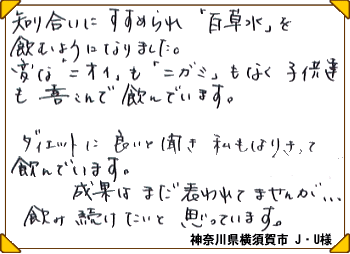 知り合いに すすめられ 「百草水」を
飲むようになりました。
変な「ニオイ」も「ニガミ」もなく 子供達
も 喜こんで 飲んでいます。
ダイエットに 良いと聞き 私もはりきって
飲んでいます。
成果は まだ 表われてませんが…
飲み 続けたいと 思っています。
神奈川県横須賀市 J・U様